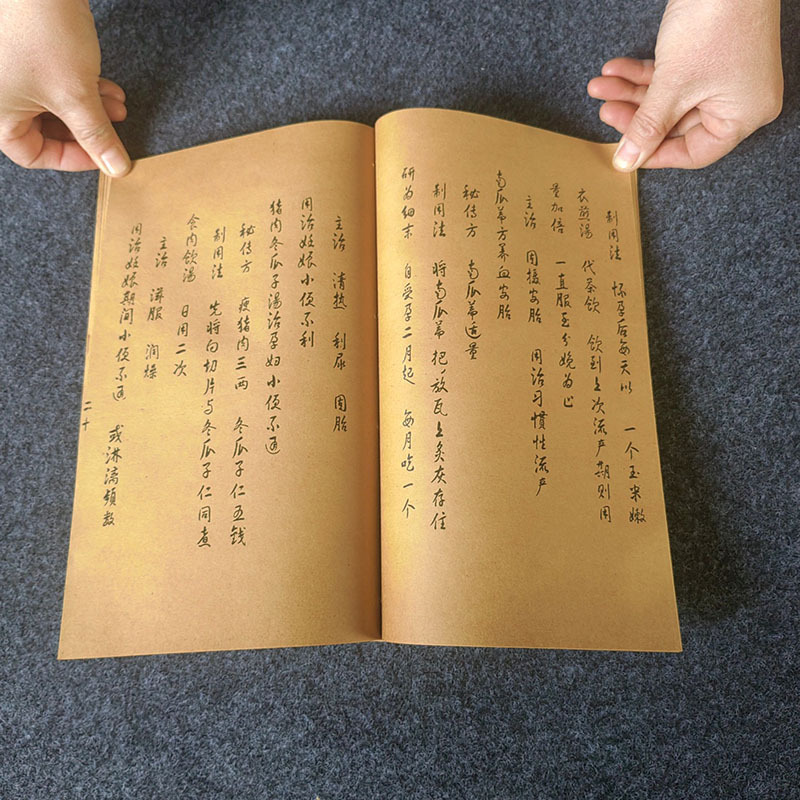 制用法 怀孕后每天以 一个玉米嫩
衣煎汤 代茶饮 饮到上次流产期则用
量加倍 一直服至分娩为止
主治 固摄安胎 用治习惯性流产
南瓜蒂方养血安胎
秘传方 南瓜蒂适量
制用法 将南瓜蒂把 放瓦上炙灰存住
研为细末 自受孕二月起 每月吃一个
主治 清热 利尿 固胎
用治妊娠小便不利
猪肉冬瓜子汤治孕妇小便不通
秘传方 瘦猪肉三两 冬瓜子仁五钱
制用法 先将肉切片与冬瓜子仁同煮
食肉饮汤 日用二次
主治 滋服 润燥
用治妊娠期间小便不通 或淋漓频数
二十